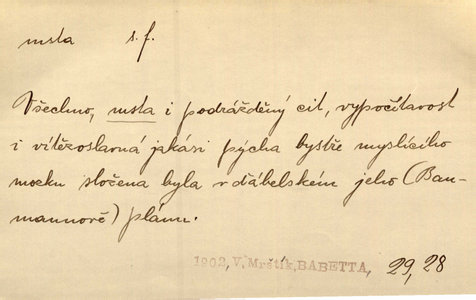 msta s. f.
Všechno, msta i podrážděný cit, vypočítavost
i vítězoslavná jakási pýcha bystře myslícího
mozku složena byla v ďábelském jeho (Bau-
mannově) plánu.
1902, V. Mrštík, BABETTA, 29, 28